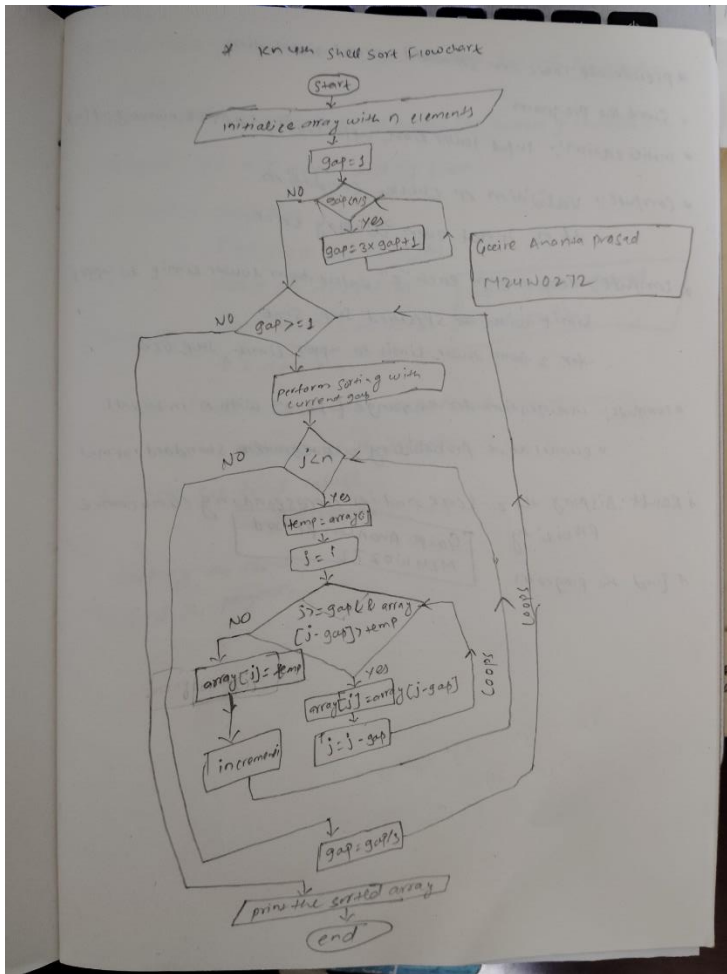 * Knuth Shell Sort Flowchart
Start
initialize array with n elements
gap=1
NO
gap<n/3
Yes
gap=3x gap+1
Gaire Ananta prasad
M24W0272
NO
gap>=1
perform sorting with
current gap
NO
i<n
Yes
temp=array[i]
j=i
NO
j>=gap && array
[j-gap]>temp
Yes
array[j]=temp
array[j]=array[j-gap]
j=j-gap
increment i
Loops
Loops
gap=gap/3
print the sorted array
end